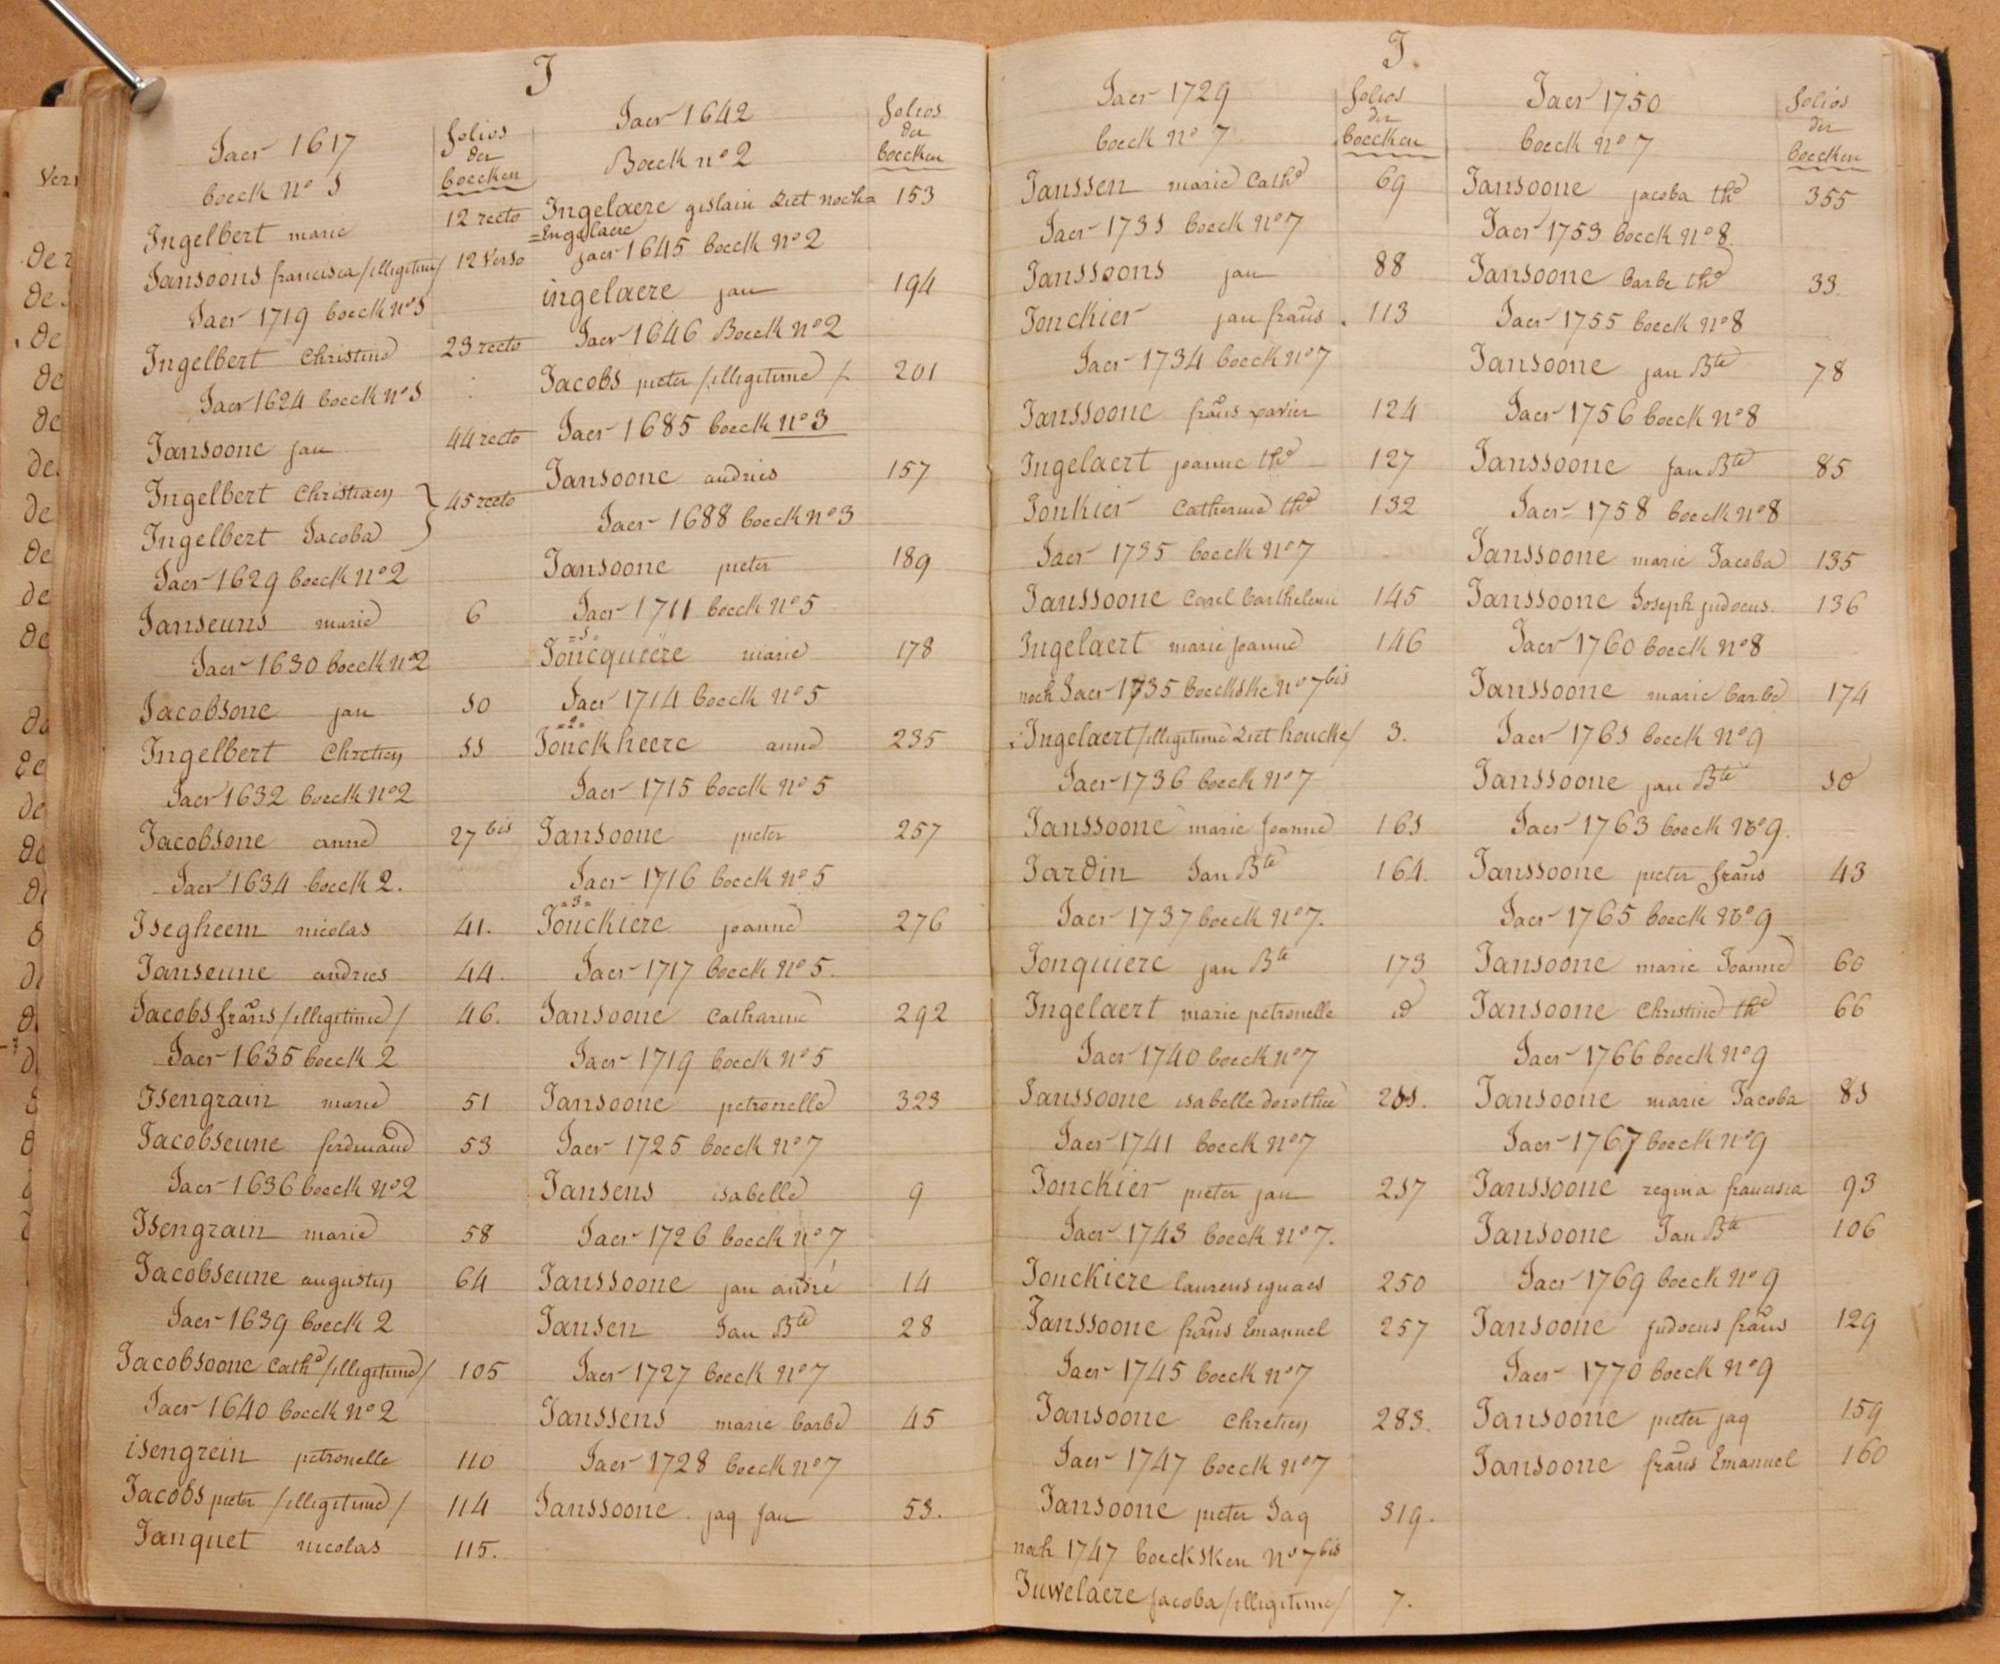 J
Jaer 1617
boeck nº 1
folios
der
boecken
Ingelbert marie 12 recto
Jansoons francisca /illegitime/ 12 verso
Jaer 1719 boeck nº 1
Ingelbert Christine 23 recto
Jaer 1624 boeck nº 1
Jansoone jan 44 recto
Ingelbert Christiaen } 45 recto
Ingelbert Jacoba
Jaer 1629 boeck nº 2
Janseuns marie 6
Jaer 1630 boeck nº 2
Jacobsone jan 10
Ingelbert Chretien 11
Jaer 1632 boeck nº 2
Jacobsone anne 27 bis
Jaer 1634 boeck 2.
Isegheem nicolas 41.
Janseune andries 44.
Jacobs frans /illegitime/ 46.
Jaer 1635 boeck 2
Isengrain marie 51
Jacobseune ferdinand 53
Jaer 1636 boeck nº 2
Isengrain marie 58
Jacobseune augustyn 64
Jaer 1639 boeck 2
Jacobsoone Cathe /illegitime/ 105
Jaer 1640 boeck nº 2
isengrein petronelle 110
Jacobs pieter /illegitime/ 114
Janquet nicolas 115.
Jaer 1642
Boeck nº 2
folios
der
boecken
Ingelaere gislain 153
=Engelaere
jaer 1645 boeck nº 2
ingelaere jan 194
Jaer 1646 Boeck nº 2
Jacobs pieter /illegitime/ 201
Jaer 1685 boeck nº 3
Jansoone andries 157
Jaer 1688 boeck nº 3
Jansoone pieter 189
Jaer 1711 boeck nº 5
=1=
Joncquiere marie 178
Jaer 1714 boeck nº 5
=2=
Jonckheere anne 235
Jaer 1715 boeck nº 5
Jansoone pieter 257
Jaer 1716 boeck nº 5
=3=
Jonckiere joanne 276
Jaer 1717 boeck nº 5.
Jansoone Catharine 292
Jaer 1719 boeck nº 5
Jansoone petronelle 323
Jaer 1725 boeck nº 7
Jansens isabelle 9
Jaer 1726 boeck nº 7
Janssoone jan andré 14
Jansen Jan Bte 28
Jaer 1727 boeck nº 7
Janssens marie barbe 45
Jaer 1728 boeck nº 7
Janssoone jaq jan 53.
J.
Jaer 1729
boeck nº 7
folios
der
boecken
Janssen marie Cathe 69
Jaer 1731 boeck nº 7
Janssoons jan 88
Jonckier jan frans 113
Jaer 1734 boeck nº 7
Janssoone frans xavier 124
Ingelaert joanne the 127
Jonkier Catherine the 132
Jaer 1735 boeck nº 7
Janssoone Carel barthelemi 145
Ingelaert marie joanne 146
noch Jaer 1735 boeckske nº 7 bis
Ingelaert /illegitime houcke/ 3.
Jaer 1736 boeck nº 7
Janssoone marie joanne 161
Jardin Jan Bte 164.
Jaer 1737 boeck nº 7.
Jonquiere jan Bte 173
Ingelaert marie petronelle id
Jaer 1740 boeck nº 7
Janssoone isabelle dorothee 211.
Jaer 1741 boeck nº 7
Jonckier pieter jan 217
Jaer 1743 boeck nº 7.
Jonckiere laurens ignaes 250
Janssoone frans Emanuel 257
Jaer 1745 boeck nº 7
Jansoone Chretien 283.
Jaer 1747 boeck nº 7
Jansoone pieter Jaq 319.
noch 1747 boecksken nº 7 bis
Juwelaere jacoba /illegitime/ 7.
Jaer 1750
boeck nº 7
folios
der
boecken
Jansoone jacoba the 355
Jaer 1753 boeck nº 8.
Jansoone barbe the 33.
Jaer 1755 boeck nº 8
Jansoone jan Bte 78
Jaer 1756 boeck nº 8
Janssoone Jan Bte 85
Jaer 1758 boeck nº 8
Janssoone marie Jacoba 135
Janssoone Joseph judocus. 136
Jaer 1760 boeck nº 8
Janssoone marie barbe 174
Jaer 1761 boeck nº 9
Janssoone jan Bte 10
Jaer 1763 boeck nº 9.
Janssoone pieter frans 43
Jaer 1765 boeck nº 9
Jansoone marie Joanne 60
Jansoone Christine the 66
Jaer 1766 boeck nº 9
Jansoone marie Jacoba 81
Jaer 1767 boeck nº 9
Janssoone regina francisca 93
Jansoone Jan Bte 106
Jaer 1769 boeck nº 9
Jansoone judocus frans 129
Jaer 1770 boeck nº 9
Jansoone pieter jaq 159
Jansoone frans Emanuel 160